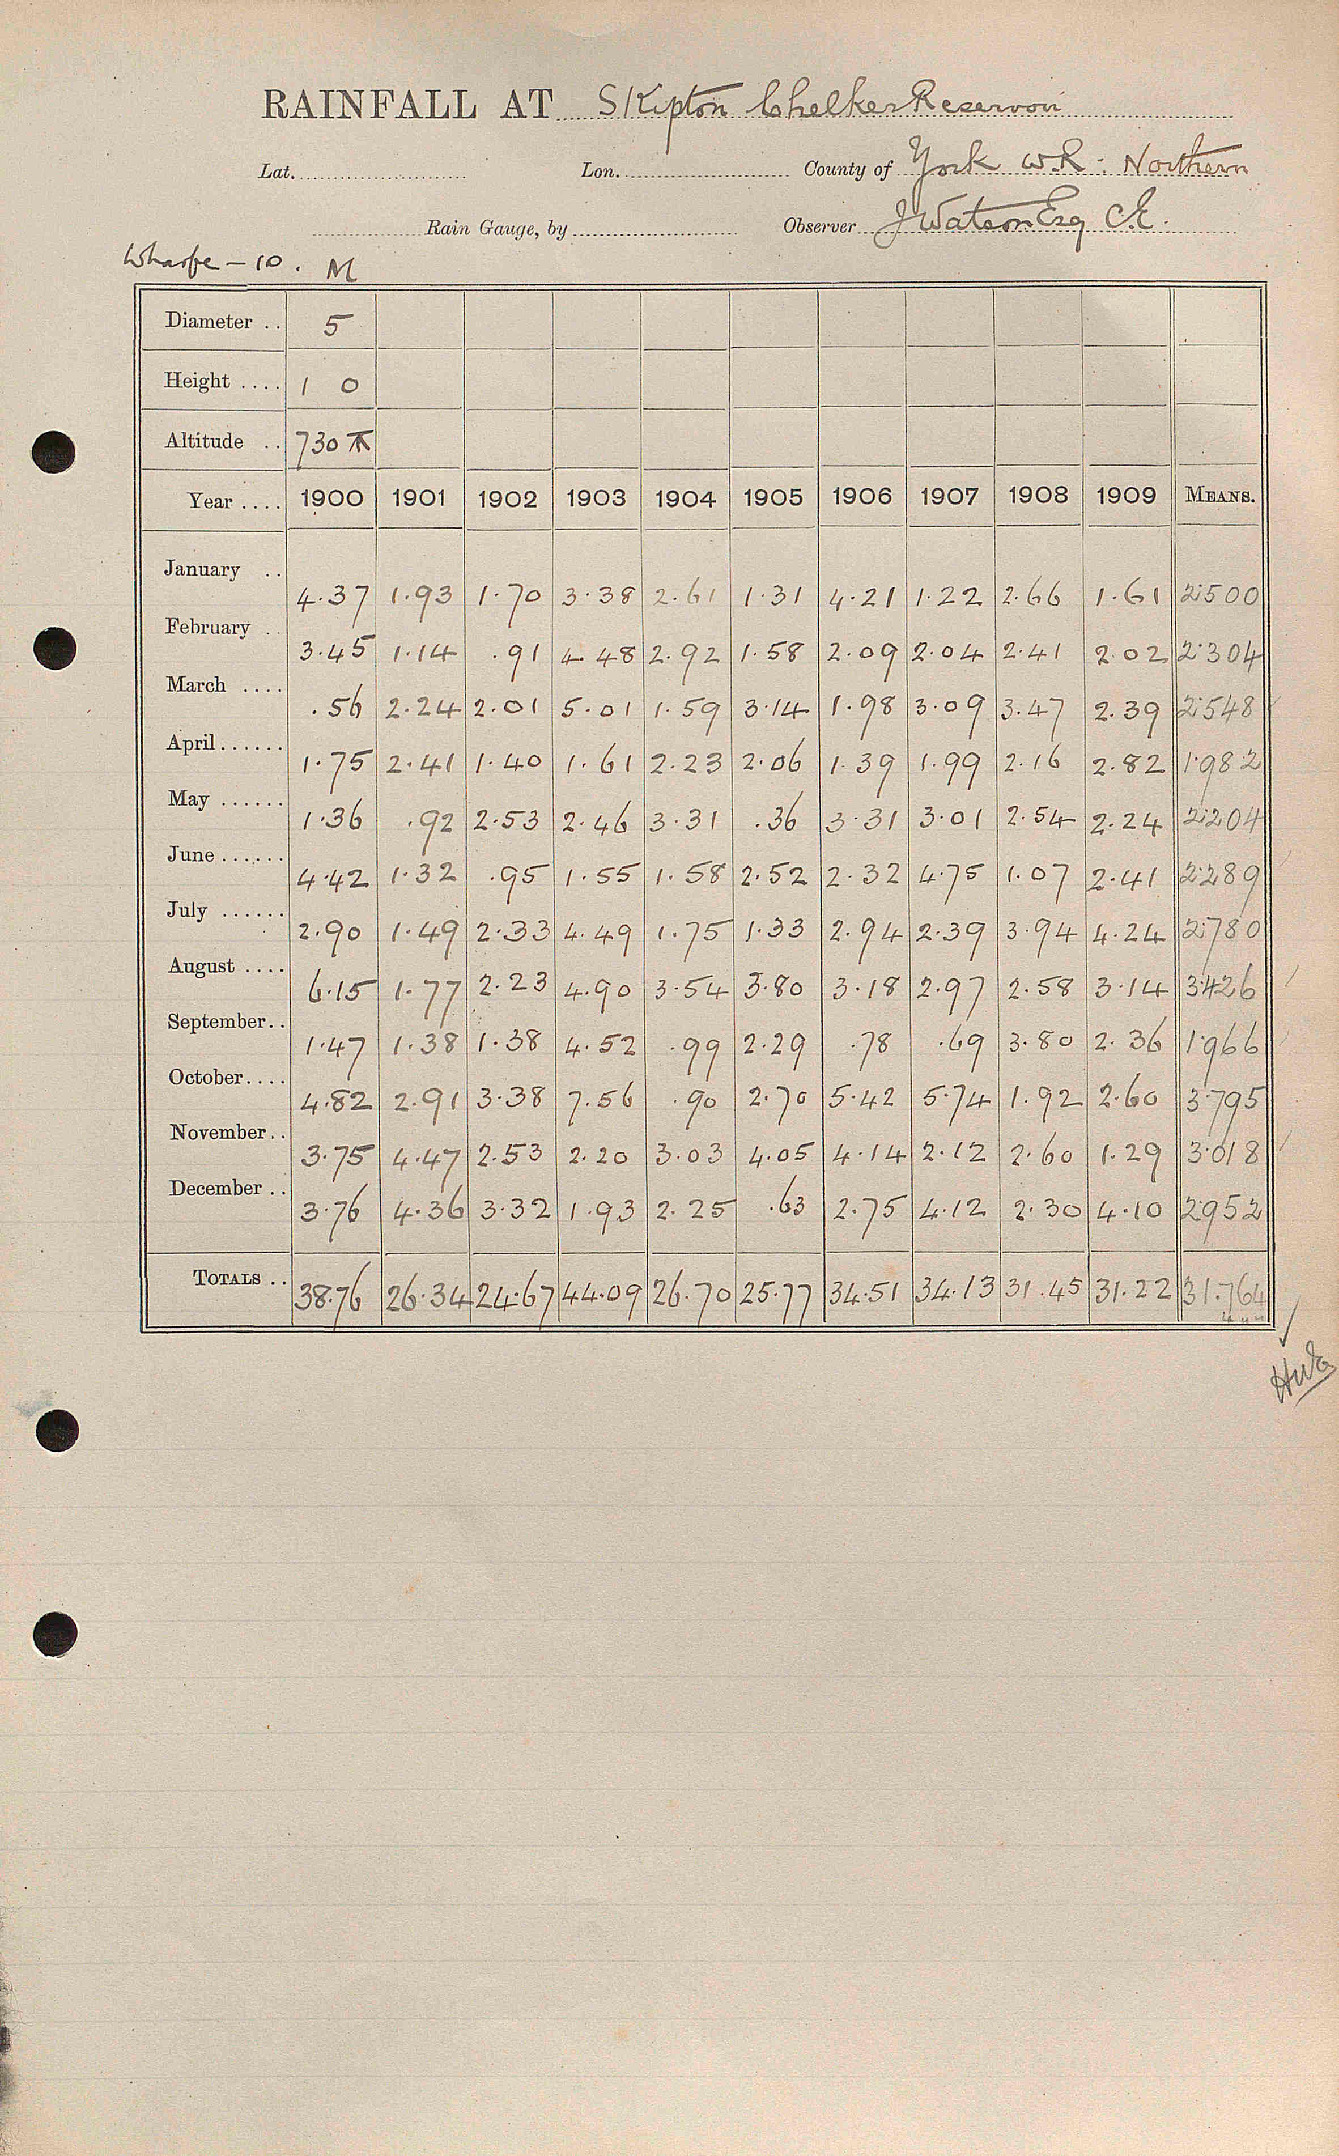 RAINFALL AT Skipton Chelker Reservoir
Lat. Lon. County of York W.R. Northern
Rain Gauge, by Observer J Watson Esq C.E.
Wharfe – 10. M
Diameter .. 5
Height .... 1 0
Altitude .. 730
Year .... 1900 1901 1902 1903 1904 1905 1906 1907 1908 1909 MEANS.
January .. 4.37 1.93 1.70 3.38 2.61 1.31 4.21 1.22 2.66 1.61 2.500
February .. 3.45 1.14 .91 4.48 2.92 1.58 2.09 2.04 2.41 2.02 2.304
March .... .56 2.24 2.01 5.01 1.59 3.14 1.98 3.09 3.47 2.39 2.548
April ...... 1.75 2.41 1.40 1.61 2.23 2.06 1.39 1.99 2.16 2.82 1.982
May ...... 1.36 .92 2.53 2.46 3.31 .36 3.31 3.01 2.54 2.24 2.204
June ...... 4.42 1.32 .95 1.55 1.58 2.52 2.32 4.75 1.07 2.41 2.289
July ...... 2.90 1.49 2.33 4.49 1.75 1.33 2.94 2.39 3.94 4.24 2.780
August .... 6.15 1.77 2.23 4.90 3.54 3.80 3.18 2.97 2.58 3.14 3.426
September .. 1.47 1.38 1.38 4.52 .99 2.29 .78 .69 3.80 2.36 1.966
October .... 4.82 2.91 3.38 7.56 .90 2.70 5.42 5.74 1.92 2.60 3.795
November .. 3.75 4.47 2.53 2.20 3.03 4.05 4.14 2.12 2.60 1.29 3.018
December .. 3.76 4.36 3.32 1.93 2.25 .63 2.75 4.12 2.30 4.10 2.952
TOTALS .. 38.76 26.34 24.67 44.09 26.70 25.77 34.51 34.13 31.45 31.22 31.764